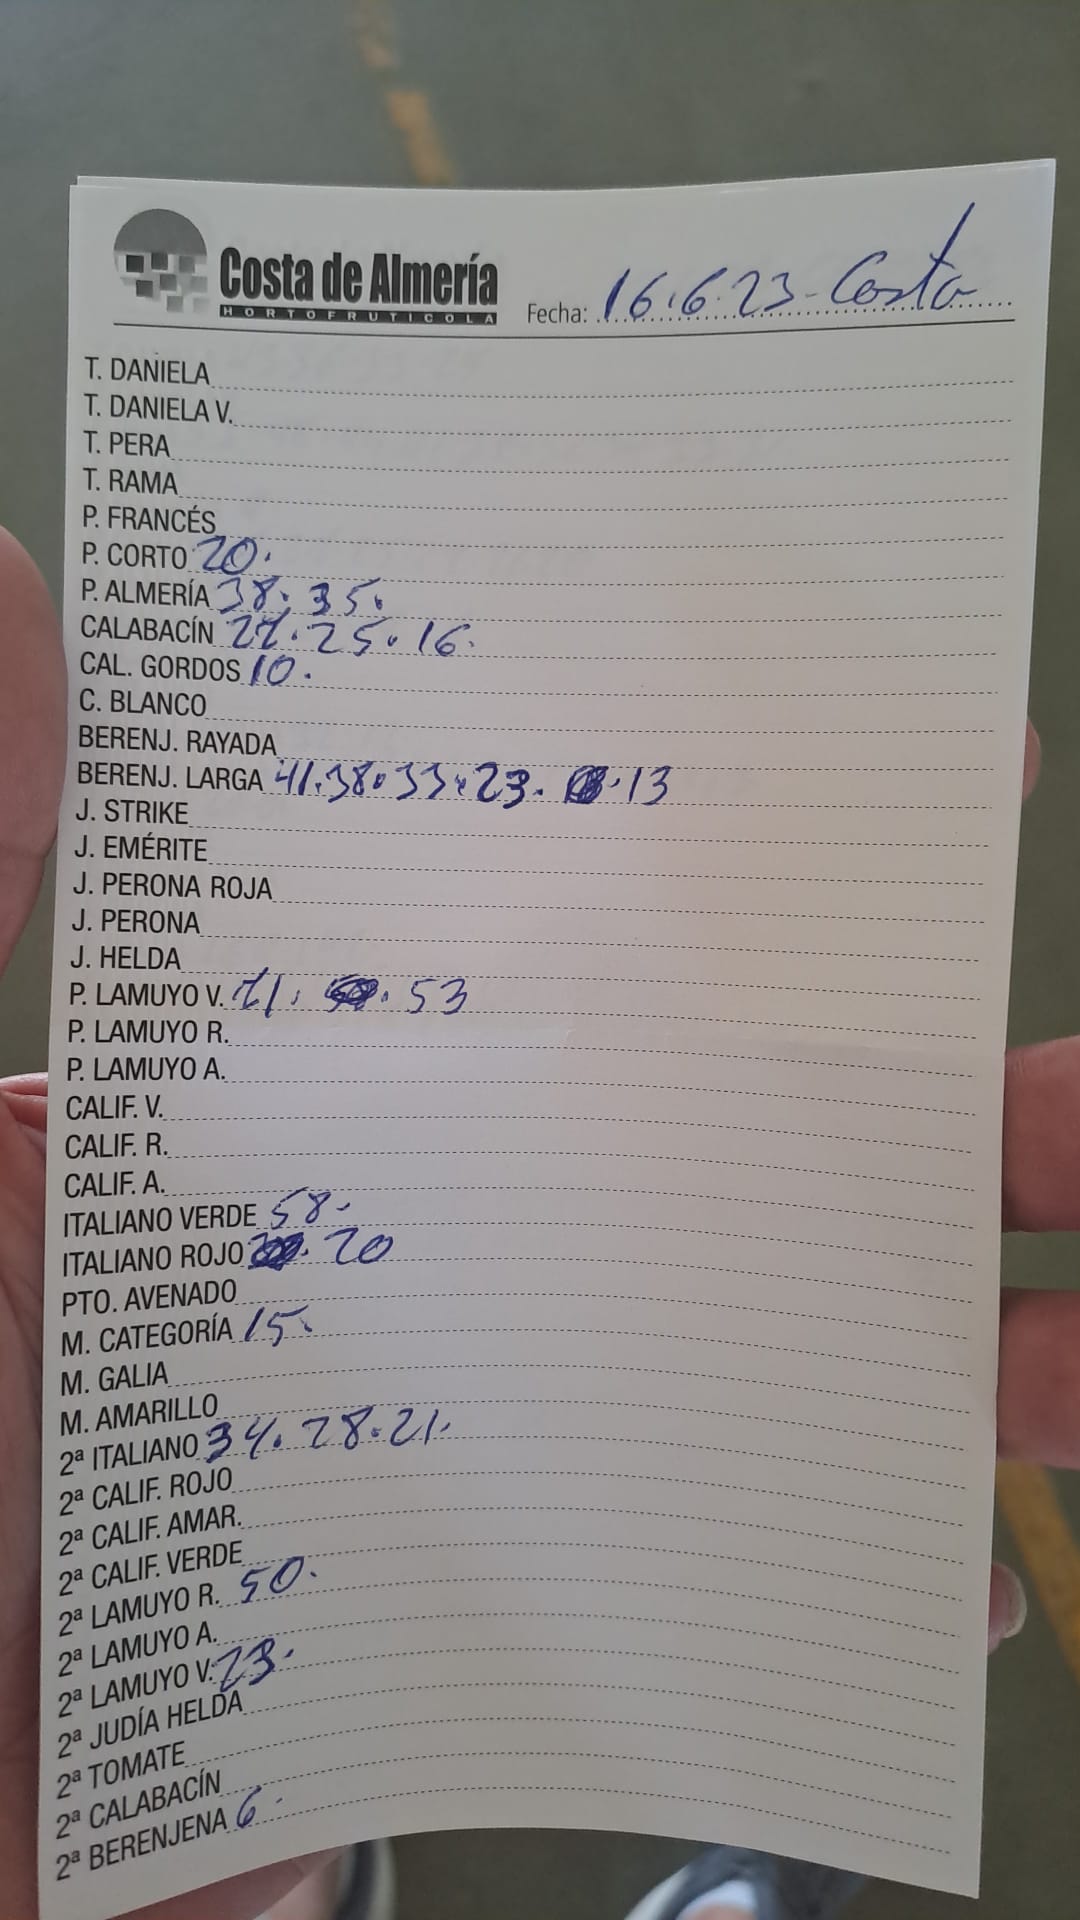 Costa de Almería
HORTOFRUTICOLA
Fecha: 16.6.23- Costa
T. DANIELA
T. DANIELA V.
T. PERA
T. RAMA
P. FRANCÉS
P. CORTO 20.
P. ALMERÍA 38. 35.
CALABACÍN 27. 25. 16.
CAL. GORDOS 10.
C. BLANCO
BERENJ. RAYADA
BERENJ. LARGA 41.38.33.23. .13
J. STRIKE
J. EMÉRITE
J. PERONA ROJA
J. PERONA
J. HELDA
P. LAMUYO V. 71. . 53
P. LAMUYO R.
P. LAMUYO A.
CALIF. V.
CALIF. R.
CALIF. A.
ITALIANO VERDE 58.
ITALIANO ROJO . 20
PTO. AVENADO
M. CATEGORÍA 15.
M. GALIA
M. AMARILLO
2ª ITALIANO 34. 28.21.
2ª CALIF. ROJO
2ª CALIF. AMAR.
2ª CALIF. VERDE
2ª LAMUYO R. 50.
2ª LAMUYO A.
2ª LAMUYO V. 23.
2ª JUDÍA HELDA
2ª TOMATE
2ª CALABACÍN
2ª BERENJENA 6.